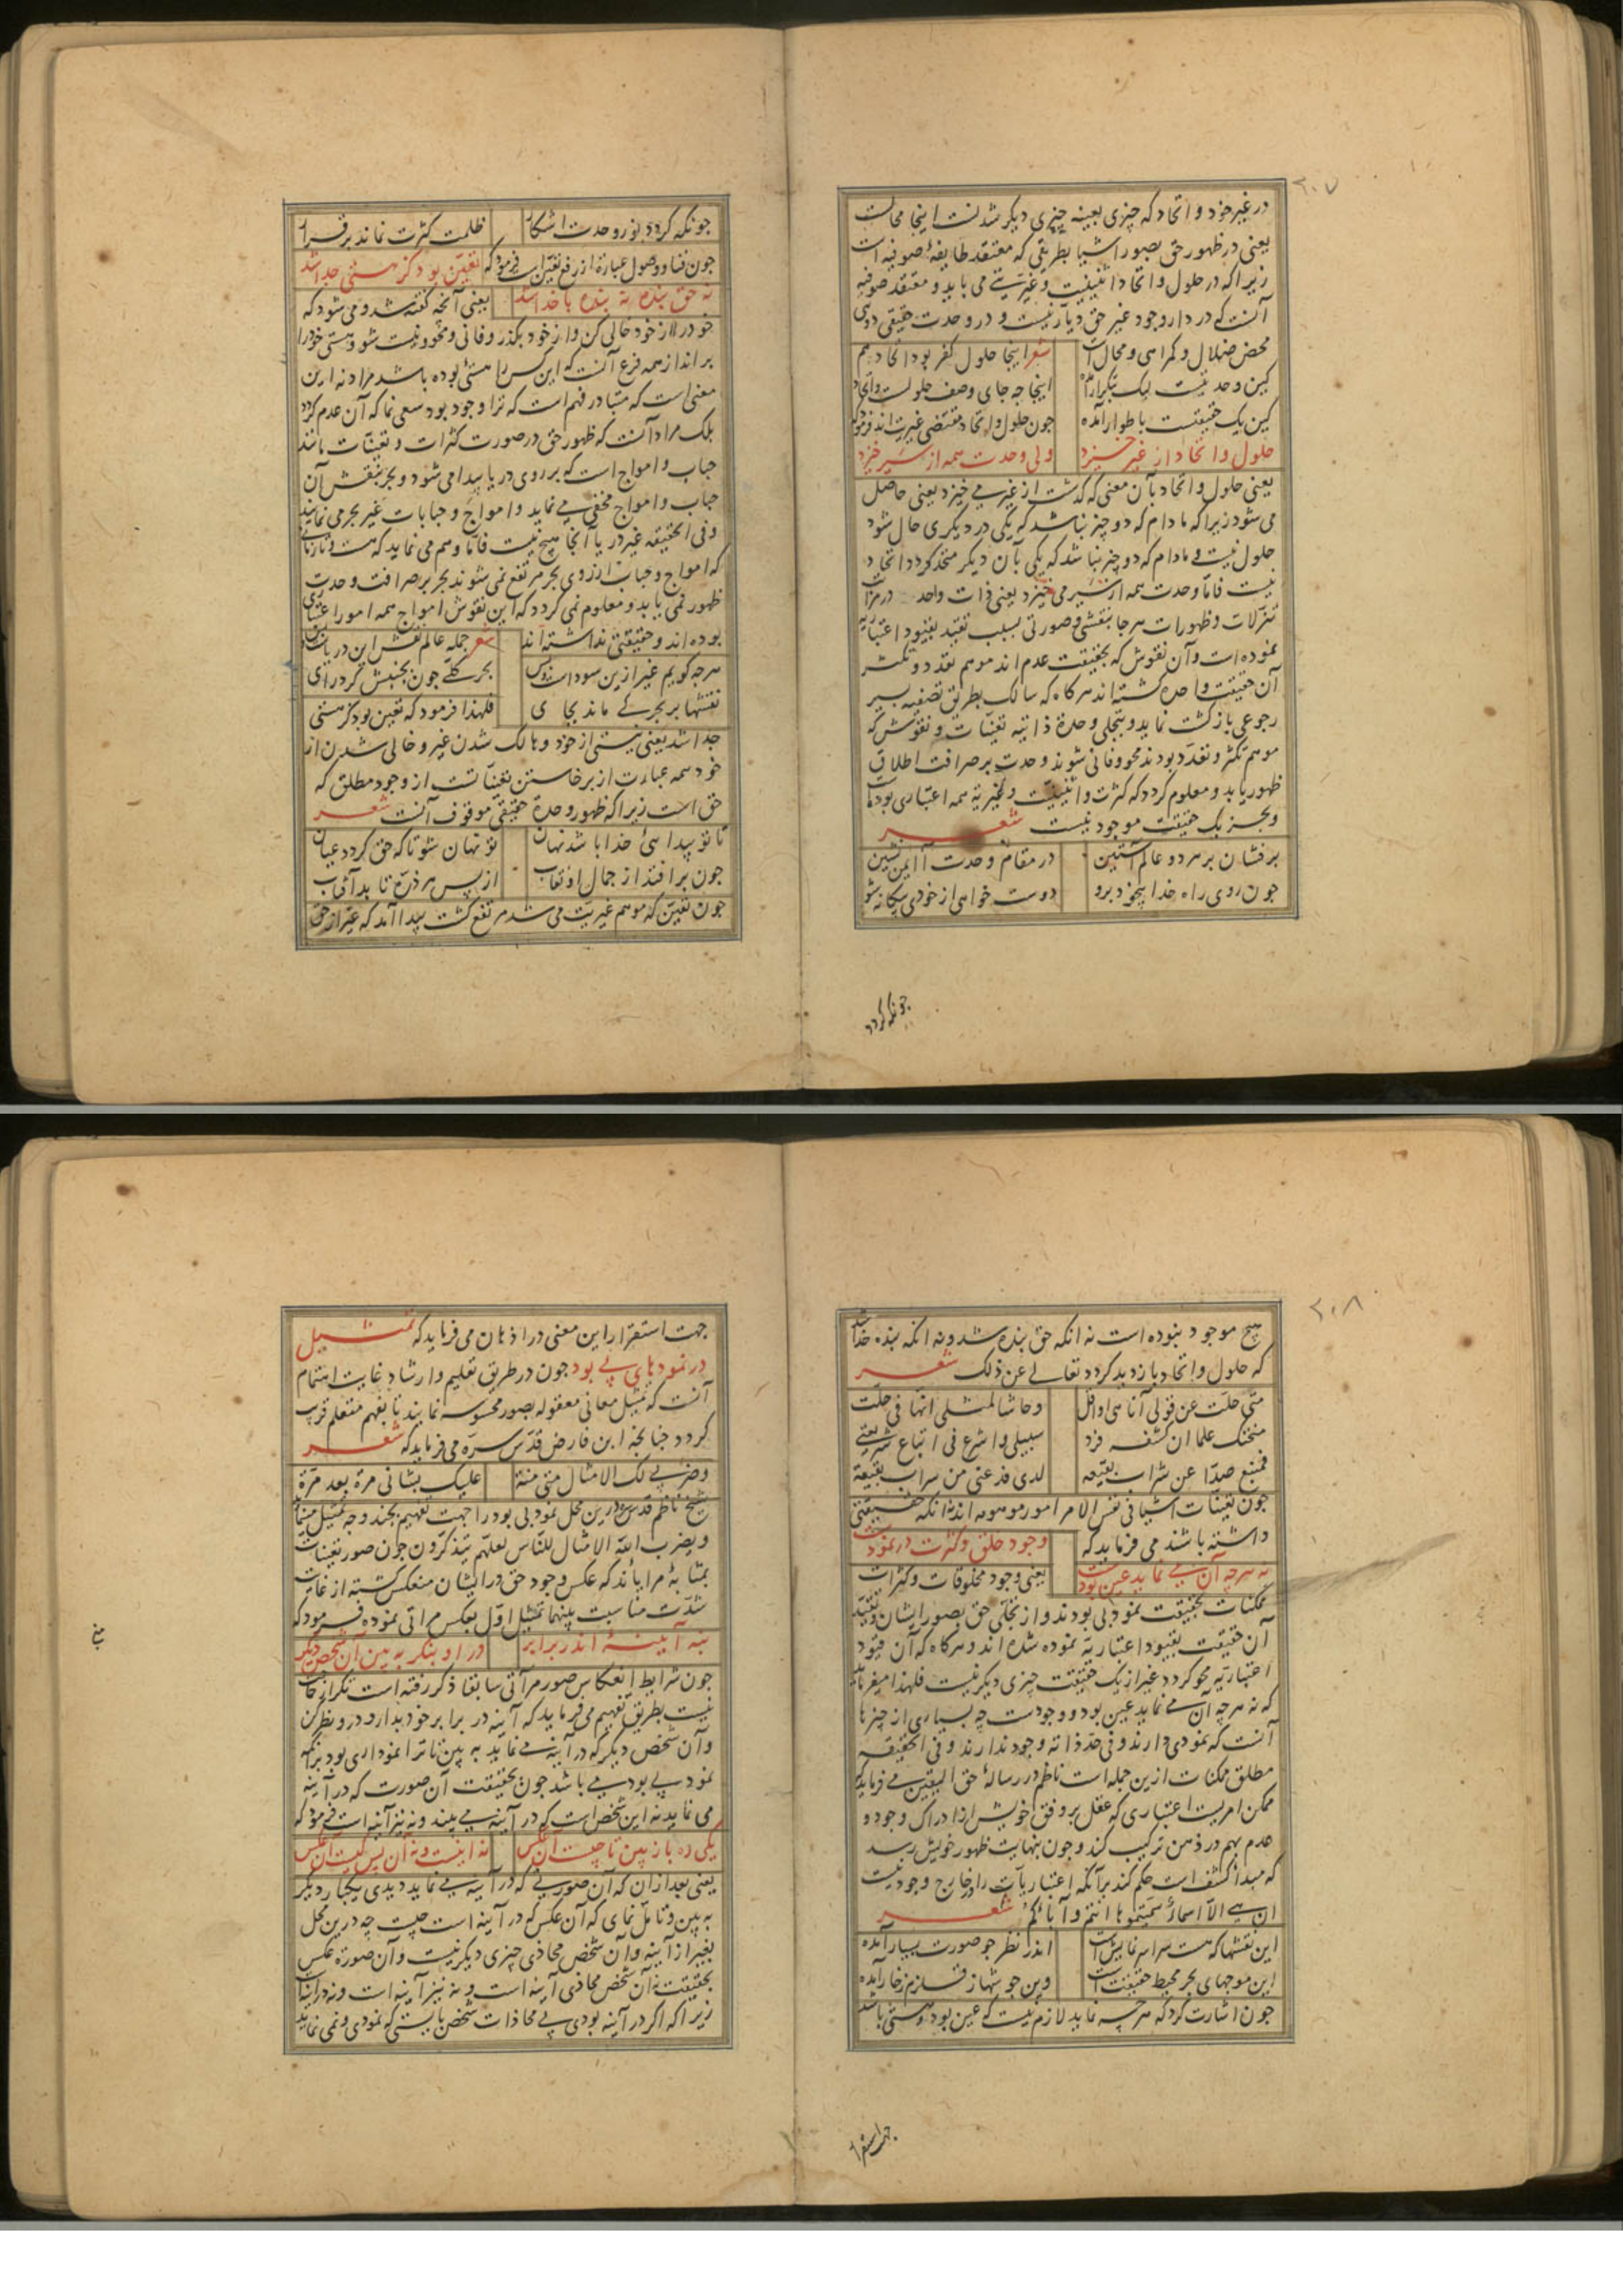 ۲۰۷
در غیر خود و اتحاد که چیزی بعینه چیزی دیکر شدنست اینجا محالست
یعنی در ظهور حق بصور اشیا بطریقی که معتقد طایفهٔ صوفیه است
زیرا که در حلول و اتحاد اثنینیت و غیریتی می باید و معتقد صوفیه
آنست که در دار وجود غیر حق دیار نیست و در وحدت حقیقی دوی
محض ضلال و کمراهی و محال است شعر اینجا حلول کفر بود اتحاد هم
کین وحدتیست لیک بتکرار آمده اینجا چه جای وصف حلولست و اتحاد
کین یک حقیقتست باطوار آمده چون حلول و اتحاد مقتضی غیریت اند فرمود که
حلول و اتحاد از غیر خیزد ولی وحدت همه از سیر خیزد
یعنی حلول و اتحاد بآن معنی که کذشت از غیر می خیزد یعنی حاصل
می شود زیرا که مادام که دو چیز نباشد که یکی در دیکری حال شود
حلول نیست و مادام که دو چیز نباشد که یکی بآن دیکر متحد کردد اتحاد
نیست فاما وحدت همه از سیر می خیزد یعنی ذات واحد در مراتب
تنزلات و ظهورات هر جا بنقشی و صورتی بسبب تقید بقیود اعتباریه
نموده است و آن نقوش که بحقیقت عدم اند موهم تعدد و تکثر
آن حقیقت واحده کشته اند هر کاه که سالک بطریق تصفیه بسیر
رجوعی بازکشت نماید و بتجلی وحدة ذاتیه تعینات و نقوش که
موهم تکثر و تعدد بودند محو و فانی شوند وحدت بر صرافت اطلاق
ظهور یابد و معلوم کردد که کثرت و اثنینیت و غیریة همه اعتباری بوده است
و بجز یک حقیقت موجود نیست شعر
برفشان بر هر دو عالم آستین در مقام وحدت آ ایمن نشین
چون روی راه خدا بیخود برو دوست خواهی از خودی بیکانه شو
چونکه کردد
چونکه کردد نور وحدت اشکار ظلمت کثرت نماند برقرار
چون فنا و وصول عبارة از رفع تعین است فرمود که تعین بود کز هستی جدا شد
نه حق بنده نه بنده با خدا شد یعنی آنچه کفته شد و می شود که
خود را از خود خالی کن و از خود بکذر و فانی و محو و نیست شو و هستی خود را
برانداز همه فرع آنست که این کس را هستئ بوده باشد مراد نه این
معنی است که متبادر فهم است که ترا وجود بود سعی نما که آن عدم کردد
بلک مراد آنست که ظهور حق در صورت کثرات و تعینات مانند
حباب و امواج است که بر روی دریا پیدا می شود و بحر بنقش آن
حباب و امواج مخفی می نماید و امواج و حبابات غیر بحر می نمایند
وفی الحقیقه غیر دریا آنجا هیچ نیست فاما وهم می نماید که هست و تا زمانی
که امواج و حباب از روی بحر مرتفع نمی شوند بحر بر صرافت وحدت
ظهور نمی یابد و معلوم نمی کردد که این نقوش امواج همه امور اعتباری
بوده اند و حقیقتی نداشته اند شعر جمله عالم نقش این دریاست بس
هرچه کویم غیر ازین سوداست و بس بحر کلی چون بجنبش کرد رای
نقشها بر بحر کی ماند بجای فلهذا فرمود که تعین بود کز هستی
جدا شد یعنی نیستی از خود و هالک شدن غیر و خالی شدن از
خود همه عبارت از برخاستن تعینات است از وجود مطلق که
حق است زیرا که ظهور وحدة حقیقی موقوف آنست شعر
تا تو پیدایئ خدا باشد نهان تو نهان شو تا که حق کردد عیان
چون برافتد از جمال او نقاب از پس هر ذره تابد آفتاب
چون تعین که موهم غیریت می شد مرتفع کشت پیدا آمد که غیر از حق
۲۰۸
هیچ موجود نبوده است نه انکه حق بنده شد و نه انکه بنده خدا شد
که حلول و اتحاد بازدید کردد تعالی عن ذلک شعر
متی حلت عن قولی انا هی او اقل وحاشا لمثلی انها فی حلت
منحتک علما ان کشفه فرد سبیلی واشرع فی اتباع شریعتی
فمنبع صدّا عن شراب نقیعه لدی فدعنی من سراب بقیعة
چون تعینات اشیا فی نفس الامر امور موهومه اند نه انکه حقیقتی
داشته باشند می فرماید که وجود خلق و کثرت در نمودست
نه هرچه آن می نماید عین بودست یعنی وجود مخلوقات و کثرات
ممکنات بحقیقت نمود بی بودند و از تجلی حق بصور ایشان و تقید
آن حقیقت بقیود اعتباریه نموده شده اند و هر کاه که آن قیود
اعتباریه محو کردد غیر از یک حقیقت چیزی دیکر نیست فلهذا میفرماید
که نه هرچه آن می نماید عین بود و وجودست چه بسیاری از چیزها
آنست که نمودی دارند و فی حد ذاته وجود ندارند و فی الحقیقه
مطلق ممکنات ازین جمله است ناظم در رسالهٔ حق الیقین می فرماید که
ممکن امریست اعتباری که عقل بر وفق خویش از ادراک وجود و
عدم بهم در ذهن ترکیب کند و چون بنهایت ظهور خویش رسد
که مبدا کشف است حکم کند بر آنکه اعتباریات را در خارج وجود نیست
ان هی الّا اسماءٌ سمیتموها انتم و آباؤکم شعر
این نقشها که هست سراسر نمایش است اندر نظر چو صورت بسیار آمده
این موجهای بحر محیط حقیقت است وین جوشها ز قلزم زخار آمده
چون اشارت کرد که هرچه نماید لازم نیست که عین بود و هستی باشد
جهت استقرا
جهت استقرار این معنی در اذهان می فرماید که تمثیل
در نمودهای بی بود چون در طریق تعلیم و ارشاد غایت اهتمام
آنست که تمثیل معانی معقوله بصور محسوسه نمایند تا بفهم متعلم قریب
کردد چنانچه ابن فارض قدّس سره می فرماید که شعر
وضربی لک الامثال منی منة علیک بشانی مرة بعد مرّة
شیخ ناظم قدس سره درین محل نمود بی بود را جهت تفهیم بچند وجه تمثیل مینماید
ویضرب الله الامثال للنّاس لعلهم یتذکرون چون صور تعینات
بمثابهٔ مرایااند که عکس وجود حق در ایشان منعکس کشته از غایت
شدّت مناسبت بینهما تمثیل اوّل بعکس مرائی نموده فرمود که
بنه آیینهٔ اندر برابر در او بنکر به بین آن شخص دیکر
چون شرایط انعکاس صور مرآتی سابقا ذکر رفته است تکرار حاجت
نیست بطریق تفهیم می فرماید که آینه در برابر خود بدار و درو نظر کن
و آن شخص دیکر که در آینه می نماید به بین تا ترا نموداری بود برآنکه
نمود بی بود می باشد چون بحقیقت آن صورت که در آینه
می نماید نه این شخص است که در آینه می بیند و نه نیز آینه است فرمود که
یکی ره باز بین تا چیست آن عکس نه اینست و نه آن پس کیست آن عکس
یعنی بعد از ان که آن صورتی که در آینه می نماید دیدی یکبار دیکر
به بین و تامّل نمای که آن عکس که در آینه است چیست چه درین محل
بغیر از آینه و آن شخص محاذی چیزی دیکر نیست و آن صورة عکس
بحقیقت نه آن شخص محاذی آینه است و نه نیز آینه است و نه در آینه است
زیرا که اکر در آینه بودی بی محاذات شخص بایستی که نمودی و نمی نماید